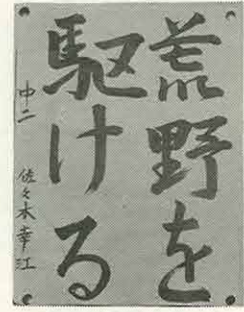 荒野を
駆ける
中二 佐々木幸江